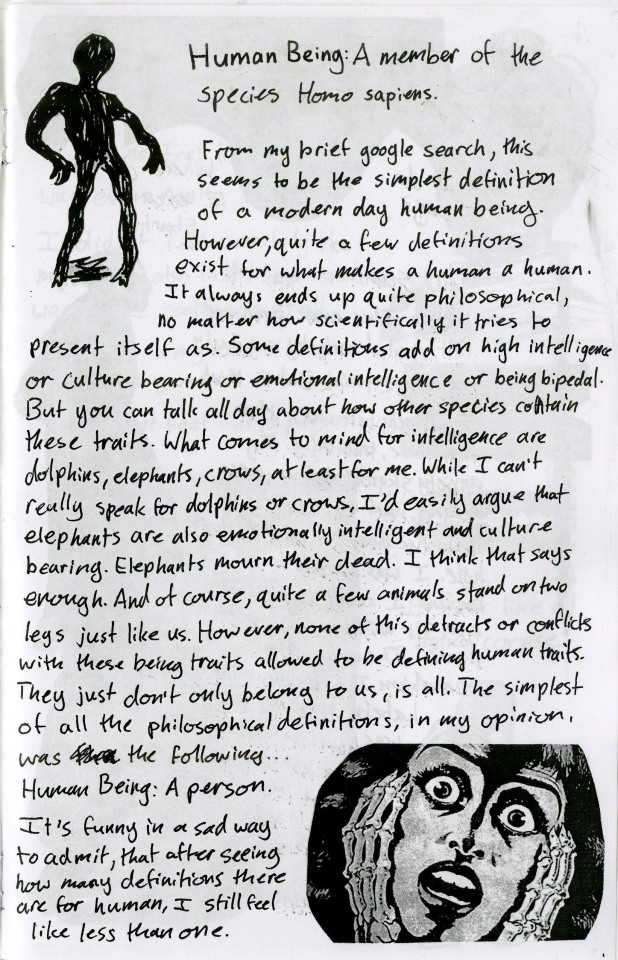 Human Being: A member of the
species Homo sapiens.
From my brief google search, this
seems to be the simplest definition
of a modern day human being.
However, quite a few definitions
exist for what makes a human a human.
It always ends up quite philosophical,
no matter how scientifically it tries to
present itself as. Some definitions add on high intelligence
or culture bearing or emotional intelligence or being bipedal.
But you can talk all day about how other species contain
these traits. What comes to mind for intelligence are
dolphins, elephants, crows, at least for me. While I can't
really speak for dolphins or crows, I'd easily argue that
elephants are also emotionally intelligent and culture
bearing. Elephants mourn their dead. I think that says
enough. And of course, quite a few animals stand on two
legs just like us. However, none of this detracts or conflicts
with these being traits allowed to be defining human traits.
They just don't only belong to us, is all. The simplest
of all the philosophical definitions, in my opinion,
was the following...
Human Being: A person.
It's funny in a sad way
to admit, that after seeing
how many definitions there
are for human, I still feel
like less than one.